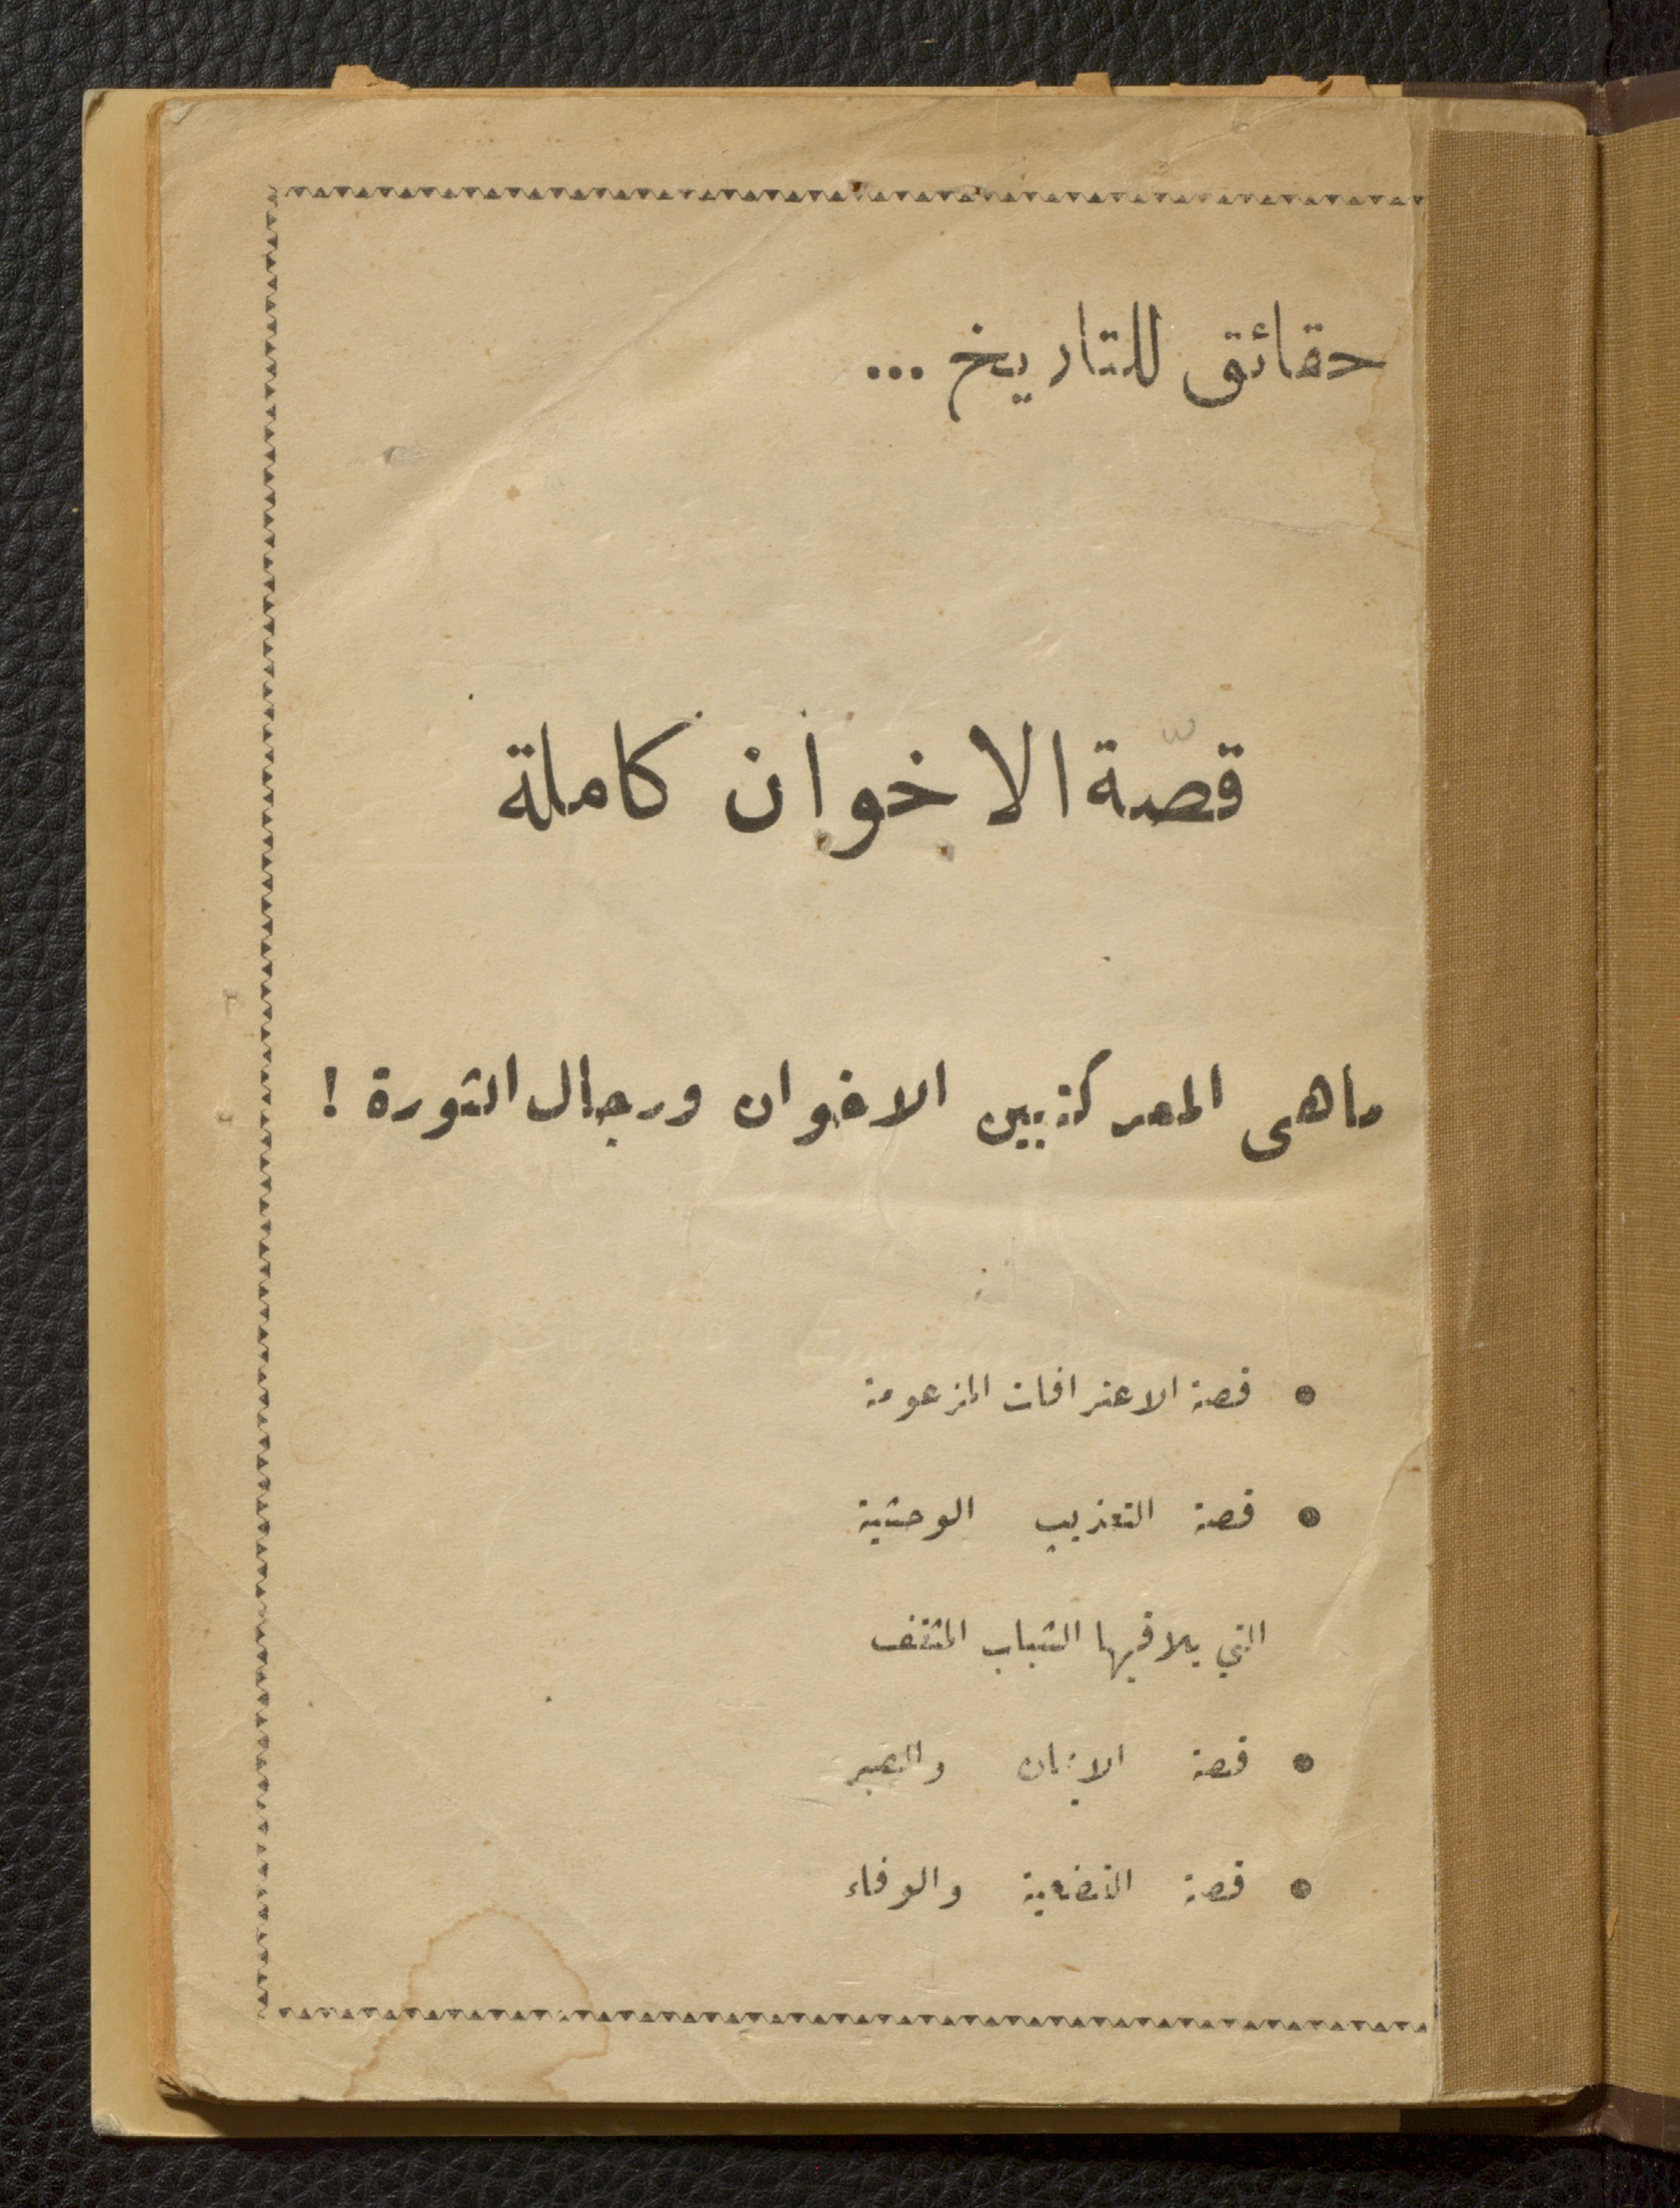 حقائق للتاريخ ...
قصّة الاخوان كاملة
ماهى المعركة بين الاخوان ورجال الثورة !
● قصة الاعترافات المزعومة
● قصة التعذيب الوحشية
التي يلاقيها الشباب المثقف
● قصة الايمان والصبر
● قصة التضحية والوفاء